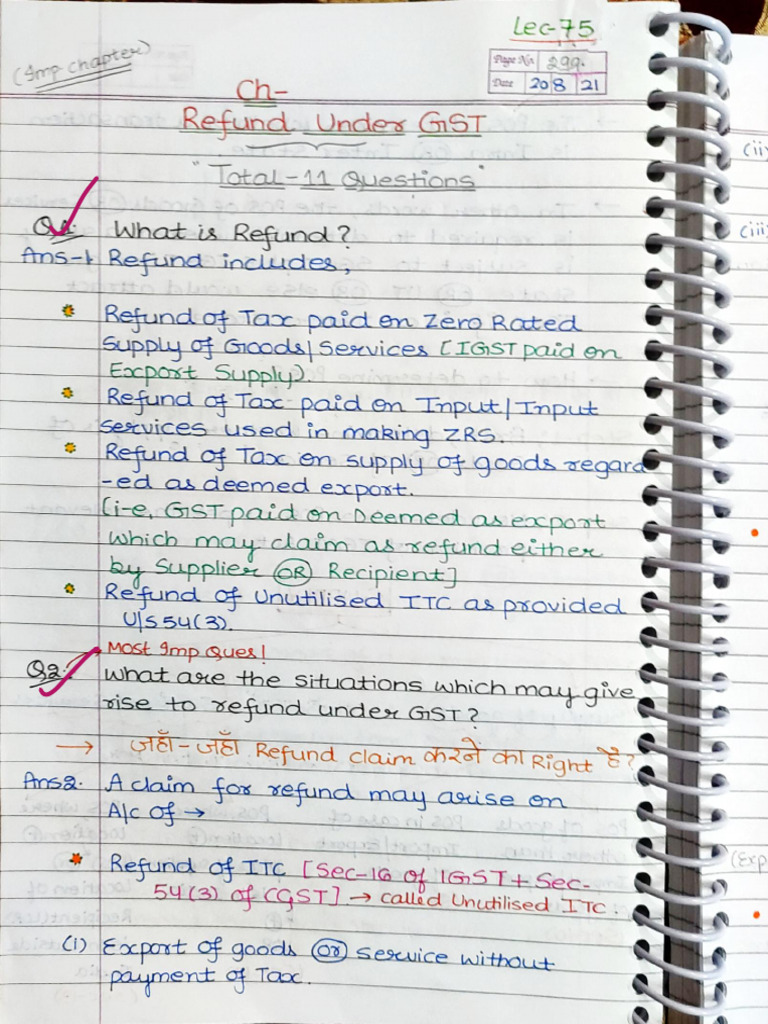 Lec-75
(Imp chapter)
Page No. 299.
Date 20 8 21
Ch-
Refund Under GST
"Total-11 Questions"
Q1. What is Refund?
Ans-1. Refund includes,
Refund of Tax paid on Zero Rated
Supply of Goods/Services [IGST paid on
Export Supply).
Refund of Tax paid on Input/Input
services used in making ZRS.
Refund of Tax on supply of goods regard
-ed as deemed export.
[i-e, GST paid on Deemed as export
which may claim as refund either
by Supplier OR Recipient]
Refund of Unutilised ITC as provided
U/S 54(3).
Most Imp Ques!
Q2. What are the situations which may give
rise to refund under GST?
→ जहाँ-जहाँ Refund claim करने का Right है?
Ans2. A claim for refund may arise on
A/c of →
Refund of ITC [Sec-16 of IGST + Sec-
54(3) of CGST] → called Unutilised ITC.
(1) Export of goods OR service without
payment of Tax.
(ii)
(iii)
(Exp